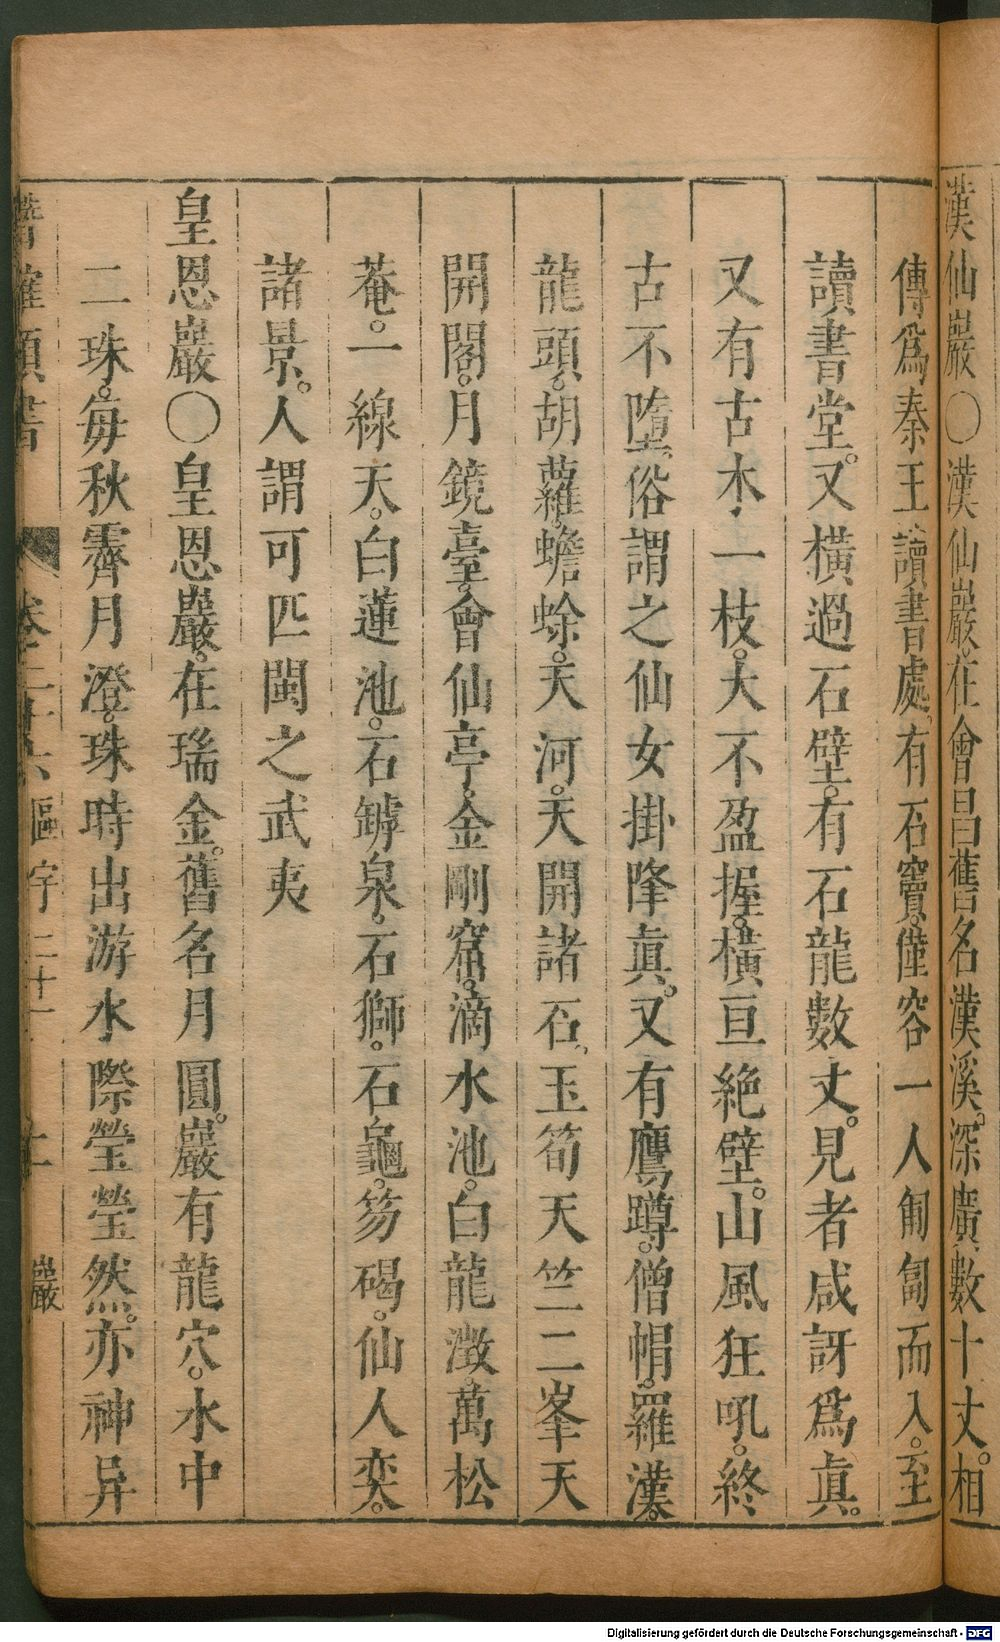 漢仙巖○漢仙巖。在會昌舊名漢溪。深廣數十丈。相
傳爲秦王讀書處。有石竇。僅容一人匍匐而入。至
讀書堂。又橫過石壁。有石龍數丈。見者咸訝爲眞。
又有古木一枝。大不盈握。橫亘絶壁。山風狂吼。終
古不墮。俗謂之仙女掛降眞。又有鷹蹲。僧帽。羅漢。
龍頭。胡蘿。蟾蜍。天河。天開諸石。玉筍天竺二峯天
開閣。月鏡臺。會仙亭。金剛窟。滴水池。白龍漈。萬松
菴。一線天。白蓮池。石罅泉。石獅。石龜。笏碣。仙人奕。
諸景。人謂可匹閩之武夷
皇恩巖○皇恩巖。在瑞金。舊名月圓。巖有龍穴。水中
二珠。每秋霽月澄。珠時出游水際瑩瑩然。亦神异
類書 卷二十六 區宇二十一 十一 巖
Digitalisierung gefördert durch die Deutsche Forschungsgemeinschaft - DFG